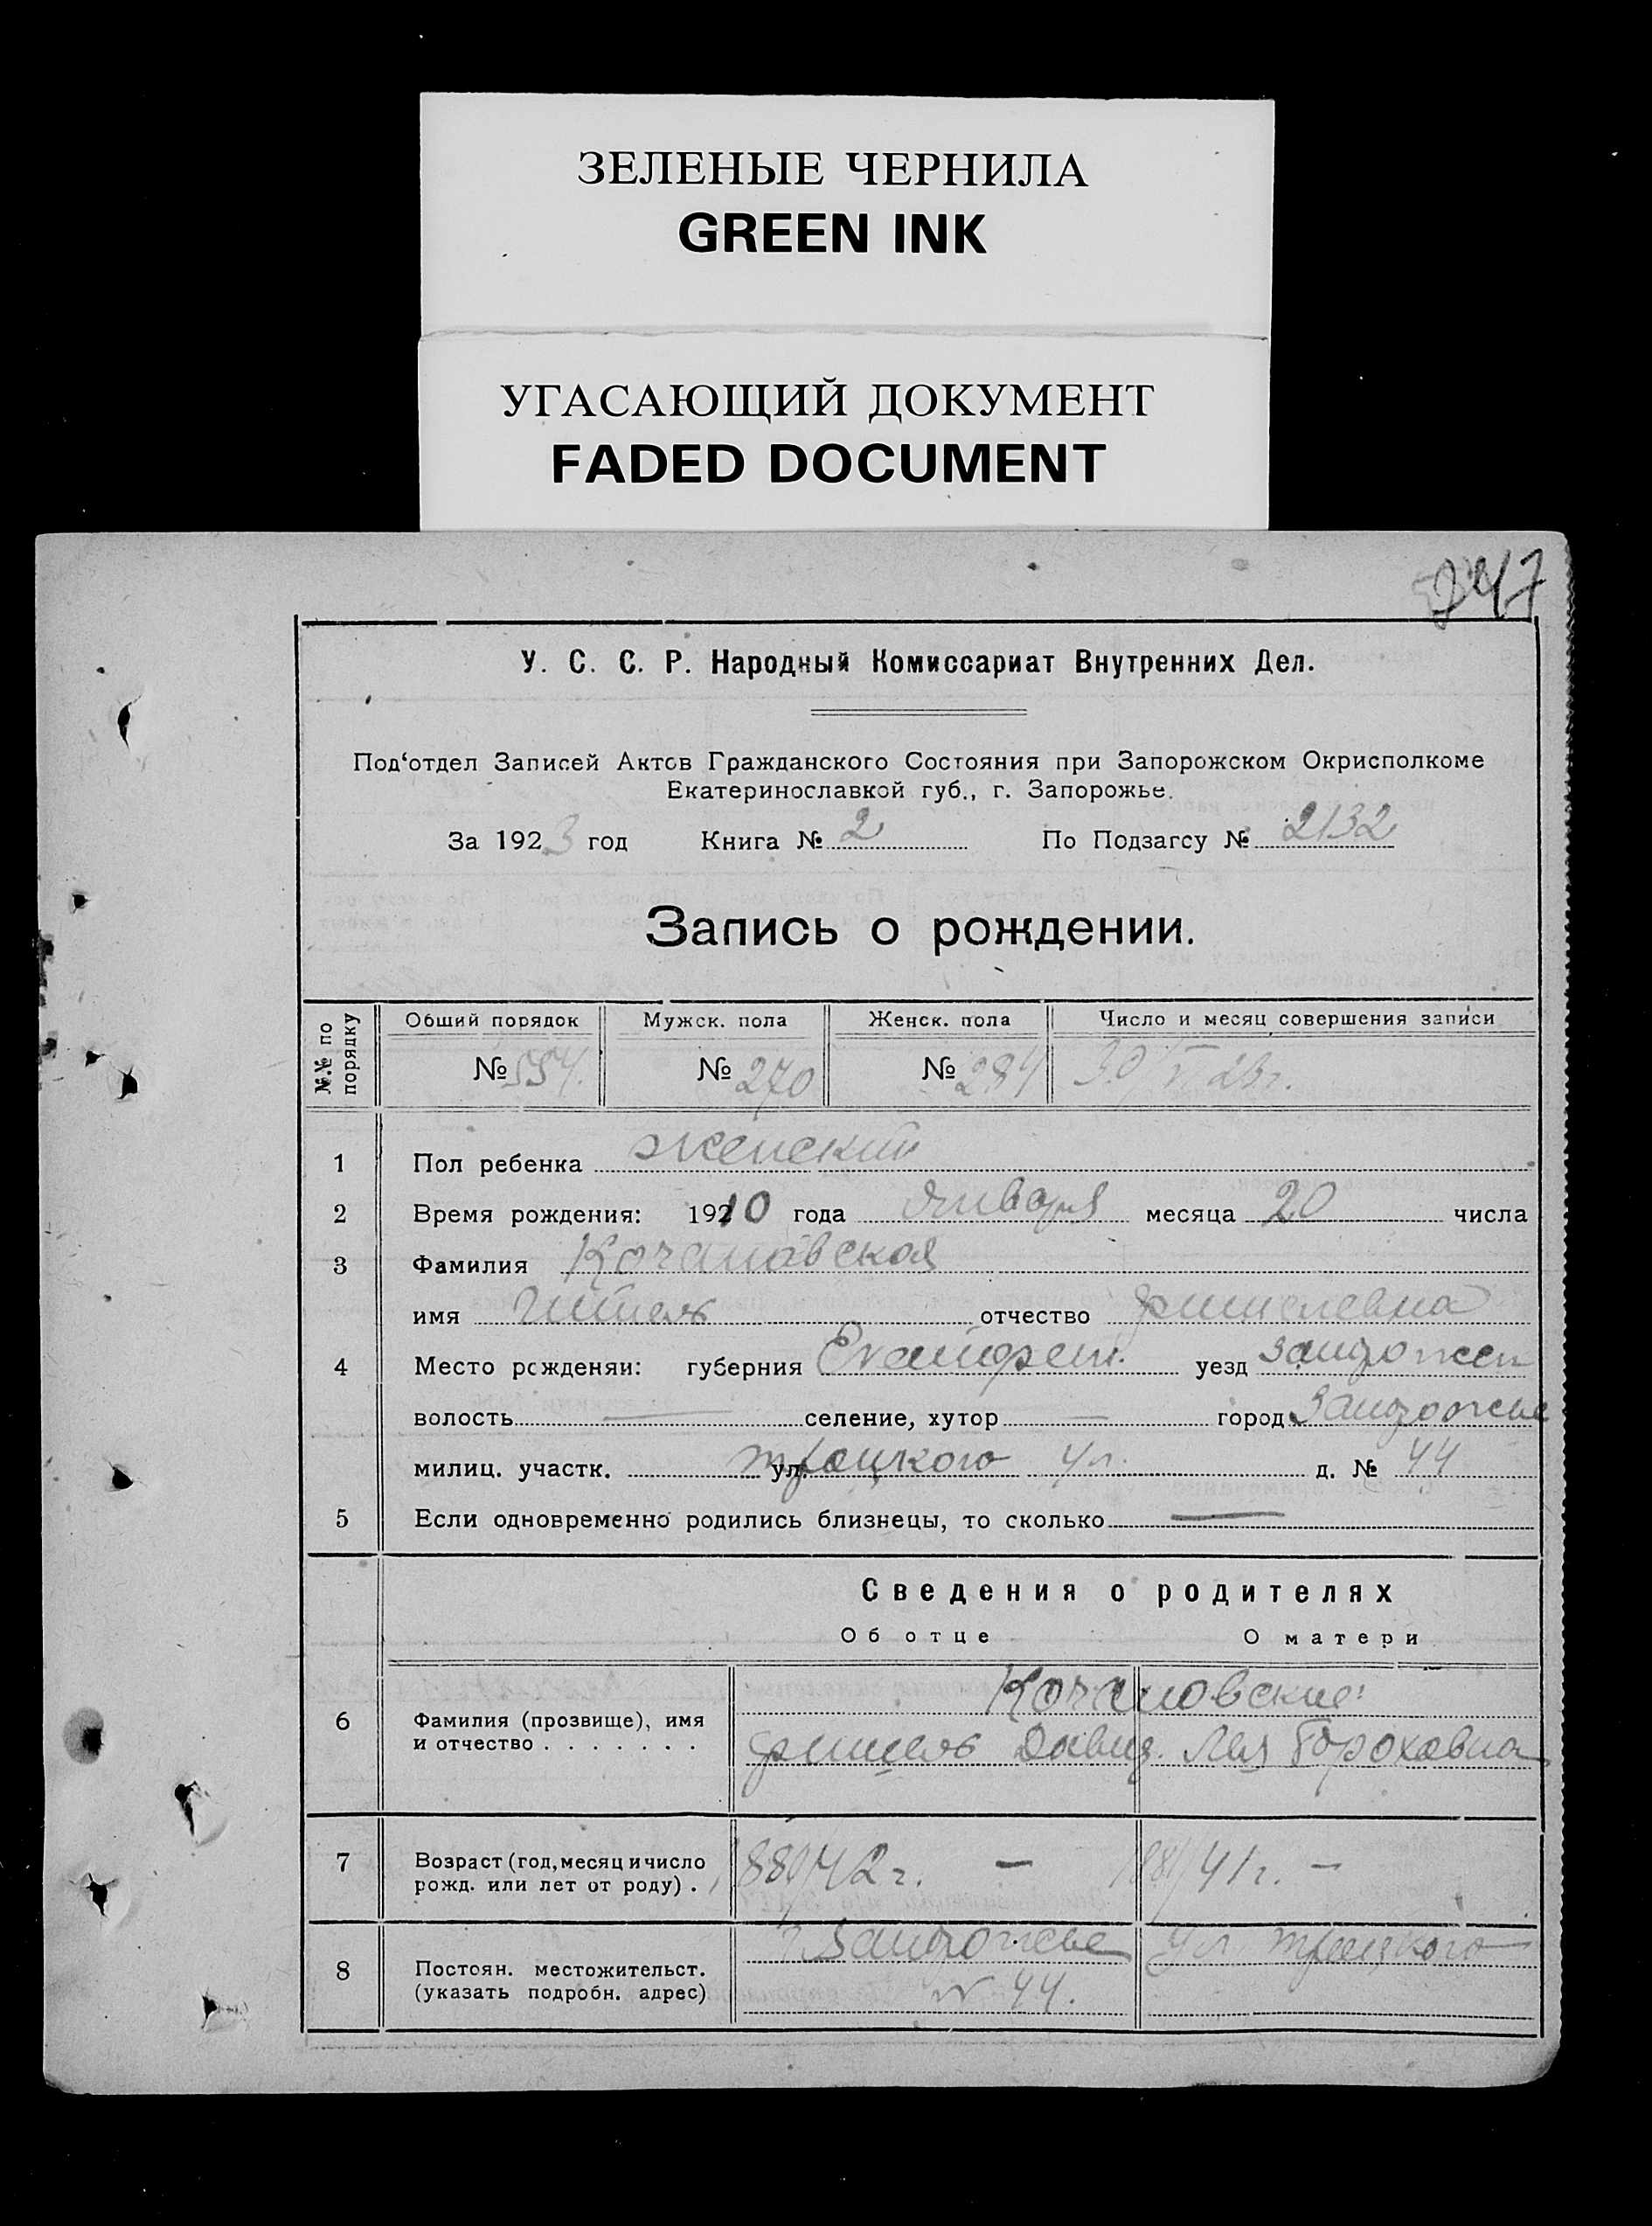 ЗЕЛЕНЫЕ ЧЕРНИЛА
GREEN INK
УГАСАЮЩИЙ ДОКУМЕНТ
FADED DOCUMENT
У. С. С. Р. Народный Комиссариат Внутренних Дел.
Под'отдел Записей Актов Гражданского Состояния при Запорожском Окрисполкоме
Екатеринославкой губ., г. Запорожье.
За 1923 год Книга № 2 По Подзагсу № 2132
Запись о рождении.
№.№ по порядку Общий порядок Мужск. пола Женск. пола Число и месяц совершения записи
№ 554. № 270 № 284 30/V 23г.
1 Пол ребенка женский
2 Время рождения: 1910 года января месяца 20 числа
3 Фамилия Кочановская
имя отчество
4 Место рожденяи: губерния уезд Запорожск
волость — селение, хутор — город Запорожье
милиц. участк. ул. Троцкого ул. д. № 44
5 Если одновременно родились близнецы, то сколько —
Сведения о родителях
Об отце О матери
6 Фамилия (прозвище), имя Кочановские
и отчество . . . . . . . Давид. Лея Гороховна
7 Возраст (год, месяц и число 42 г. — 1881/41 г. —
рожд. или лет от роду) .
8 Постоян. местожительст. г. Запорожье ул. Троцкого
(указать подробн. адрес) № 44.